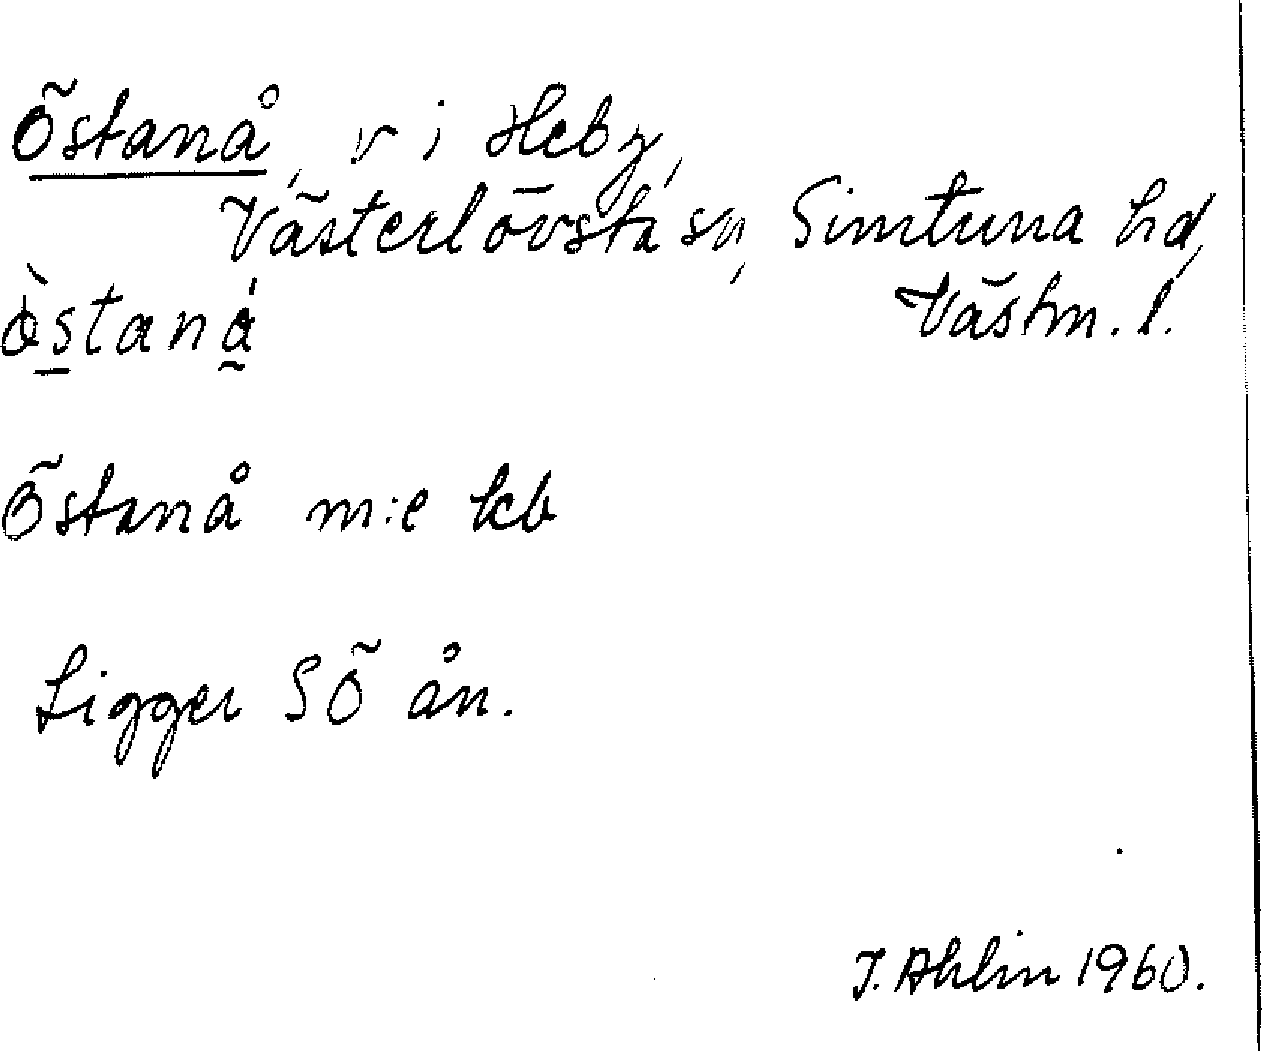 Östanå, v i Heby,
Västerlövsta sn, Simtuna hd,
Västm. l.
ò̀staną́
Östanå m:e kb
Ligger SÖ ån.
J. Ahlin 1960.